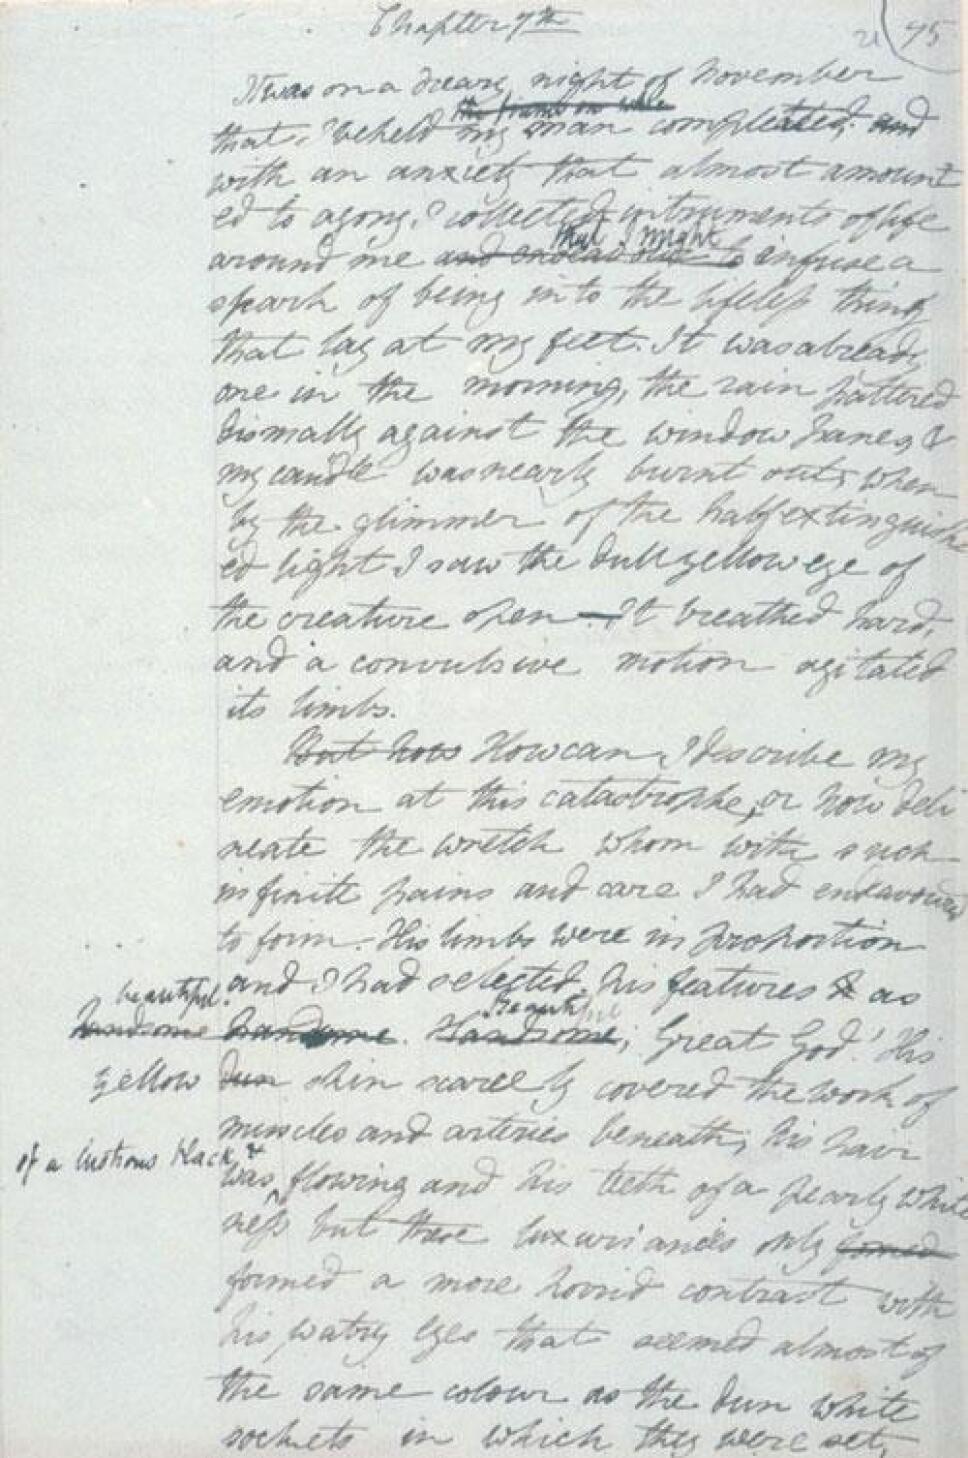 Chapter 7th
21 75
It was on a dreary night of November
the frame on whic
that I beheld my man compleated and
with an anxiety that almost amount
ed to agony, I collected instruments of life
that I might
around me and endeavour to infuse a
spark of being into the lifeless thing
that lay at my feet. It was already
one in the morning, the rain pattered
dismally against the window panes, &
my candle was nearly burnt out, when
by the glimmer of the half extinguish
ed light I saw the dull yellow eye of
the creature open—It breathed hard,
and a convulsive motion agitated
its limbs.
But how How can I describe my
emotion at this catastrophe, or how deli
neate the wretch whom with such
infinite pains and care I had endeavoured
to form. His limbs were in proportion
and I had selected his features as
beautiful. Beautiful
handsome handsome. Handsome; Great God! His
yellow dun skin scarcely covered the work of
muscles and arteries beneath; his hair
of a lustrous black &
was flowing and his teeth of a pearly white
ness but these luxuriances only formed
formed a more horrid contrast with
his watry eyes that seemed almost of
the same colour as the dun white
sockets in which they were set,